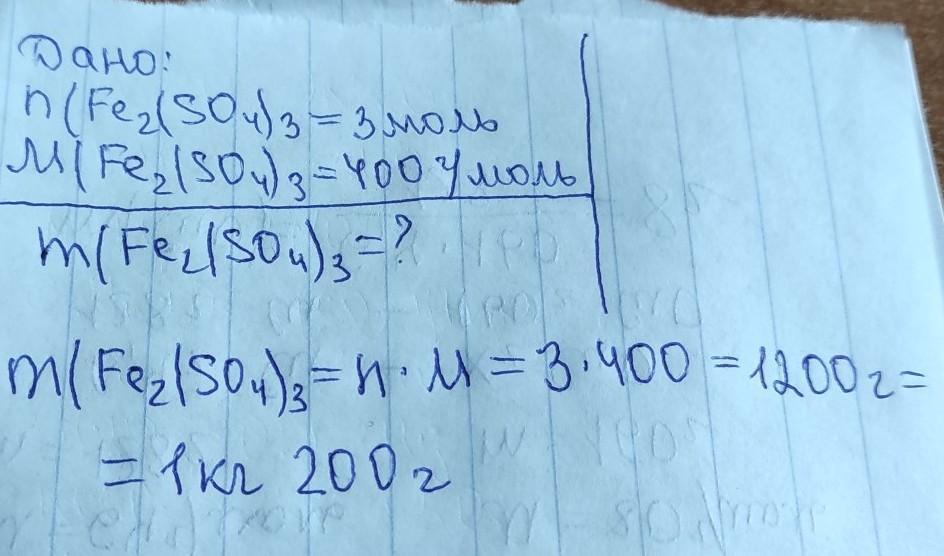 Дано:
n(Fe₂(SO₄)₃ = 3 моль
M(Fe₂(SO₄)₃ = 400 г/моль
m(Fe₂(SO₄)₃ = ?
m(Fe₂(SO₄)₃ = n · M = 3 · 400 = 1200 г =
= 1 кг 200 г